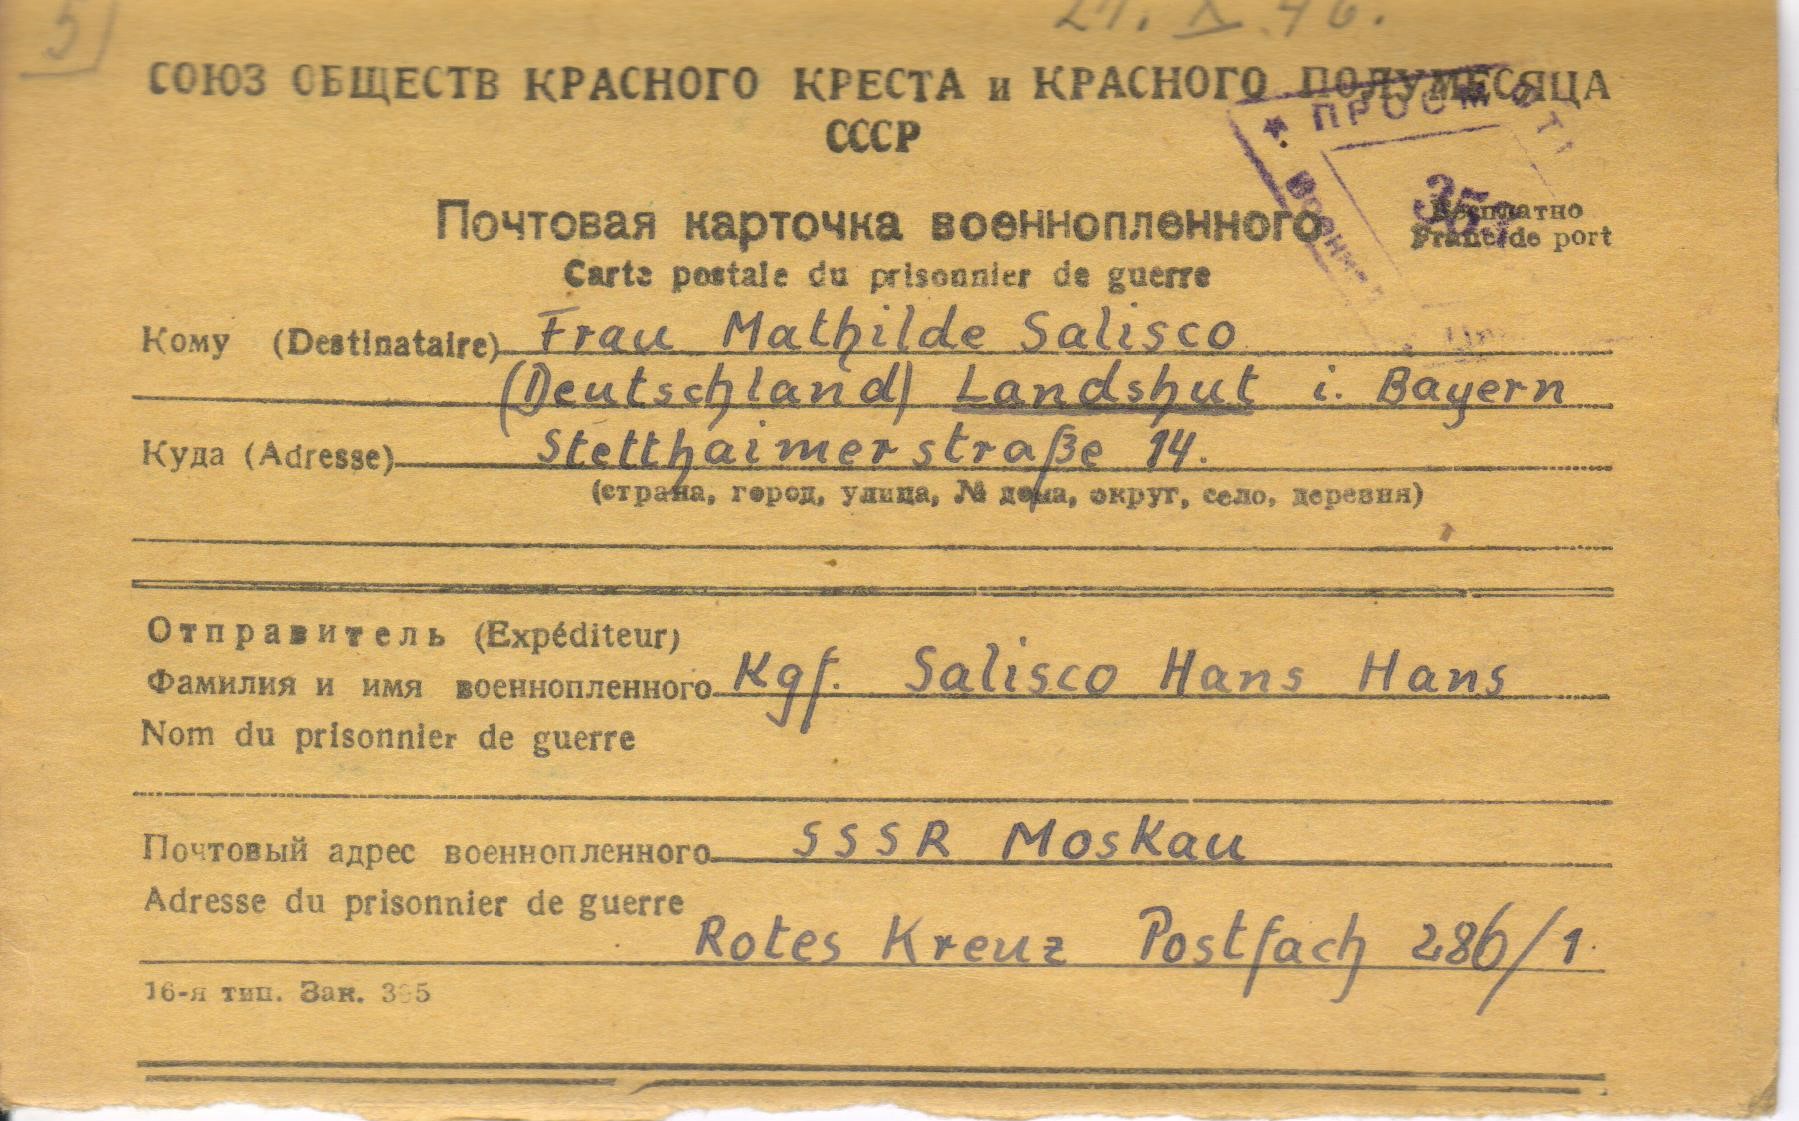 5
21. X. 46.
СОЮЗ ОБЩЕСТВ КРАСНОГО КРЕСТА и КРАСНОГО ПОЛУМЕСЯЦА
СССР
Почтовая карточка военнопленного
Carte postale du prisonnier de guerre
Бесплатно
Franc de port
Кому (Destinataire) Frau Mathilde Salisco
(Deutschland) Landshut i. Bayern
Куда (Adresse) Stetthaimerstraße 14.
(страна, город, улица, № дома, округ, село, деревня)
Отправитель (Expéditeur)
Фамилия и имя военнопленного Kgf. Salisco Hans Hans
Nom du prisonnier de guerre
Почтовый адрес военнопленного SSSR Moskau
Adresse du prisonnier de guerre
Rotes Kreuz Postfach 286/1.
16-я тип. Зак. 395